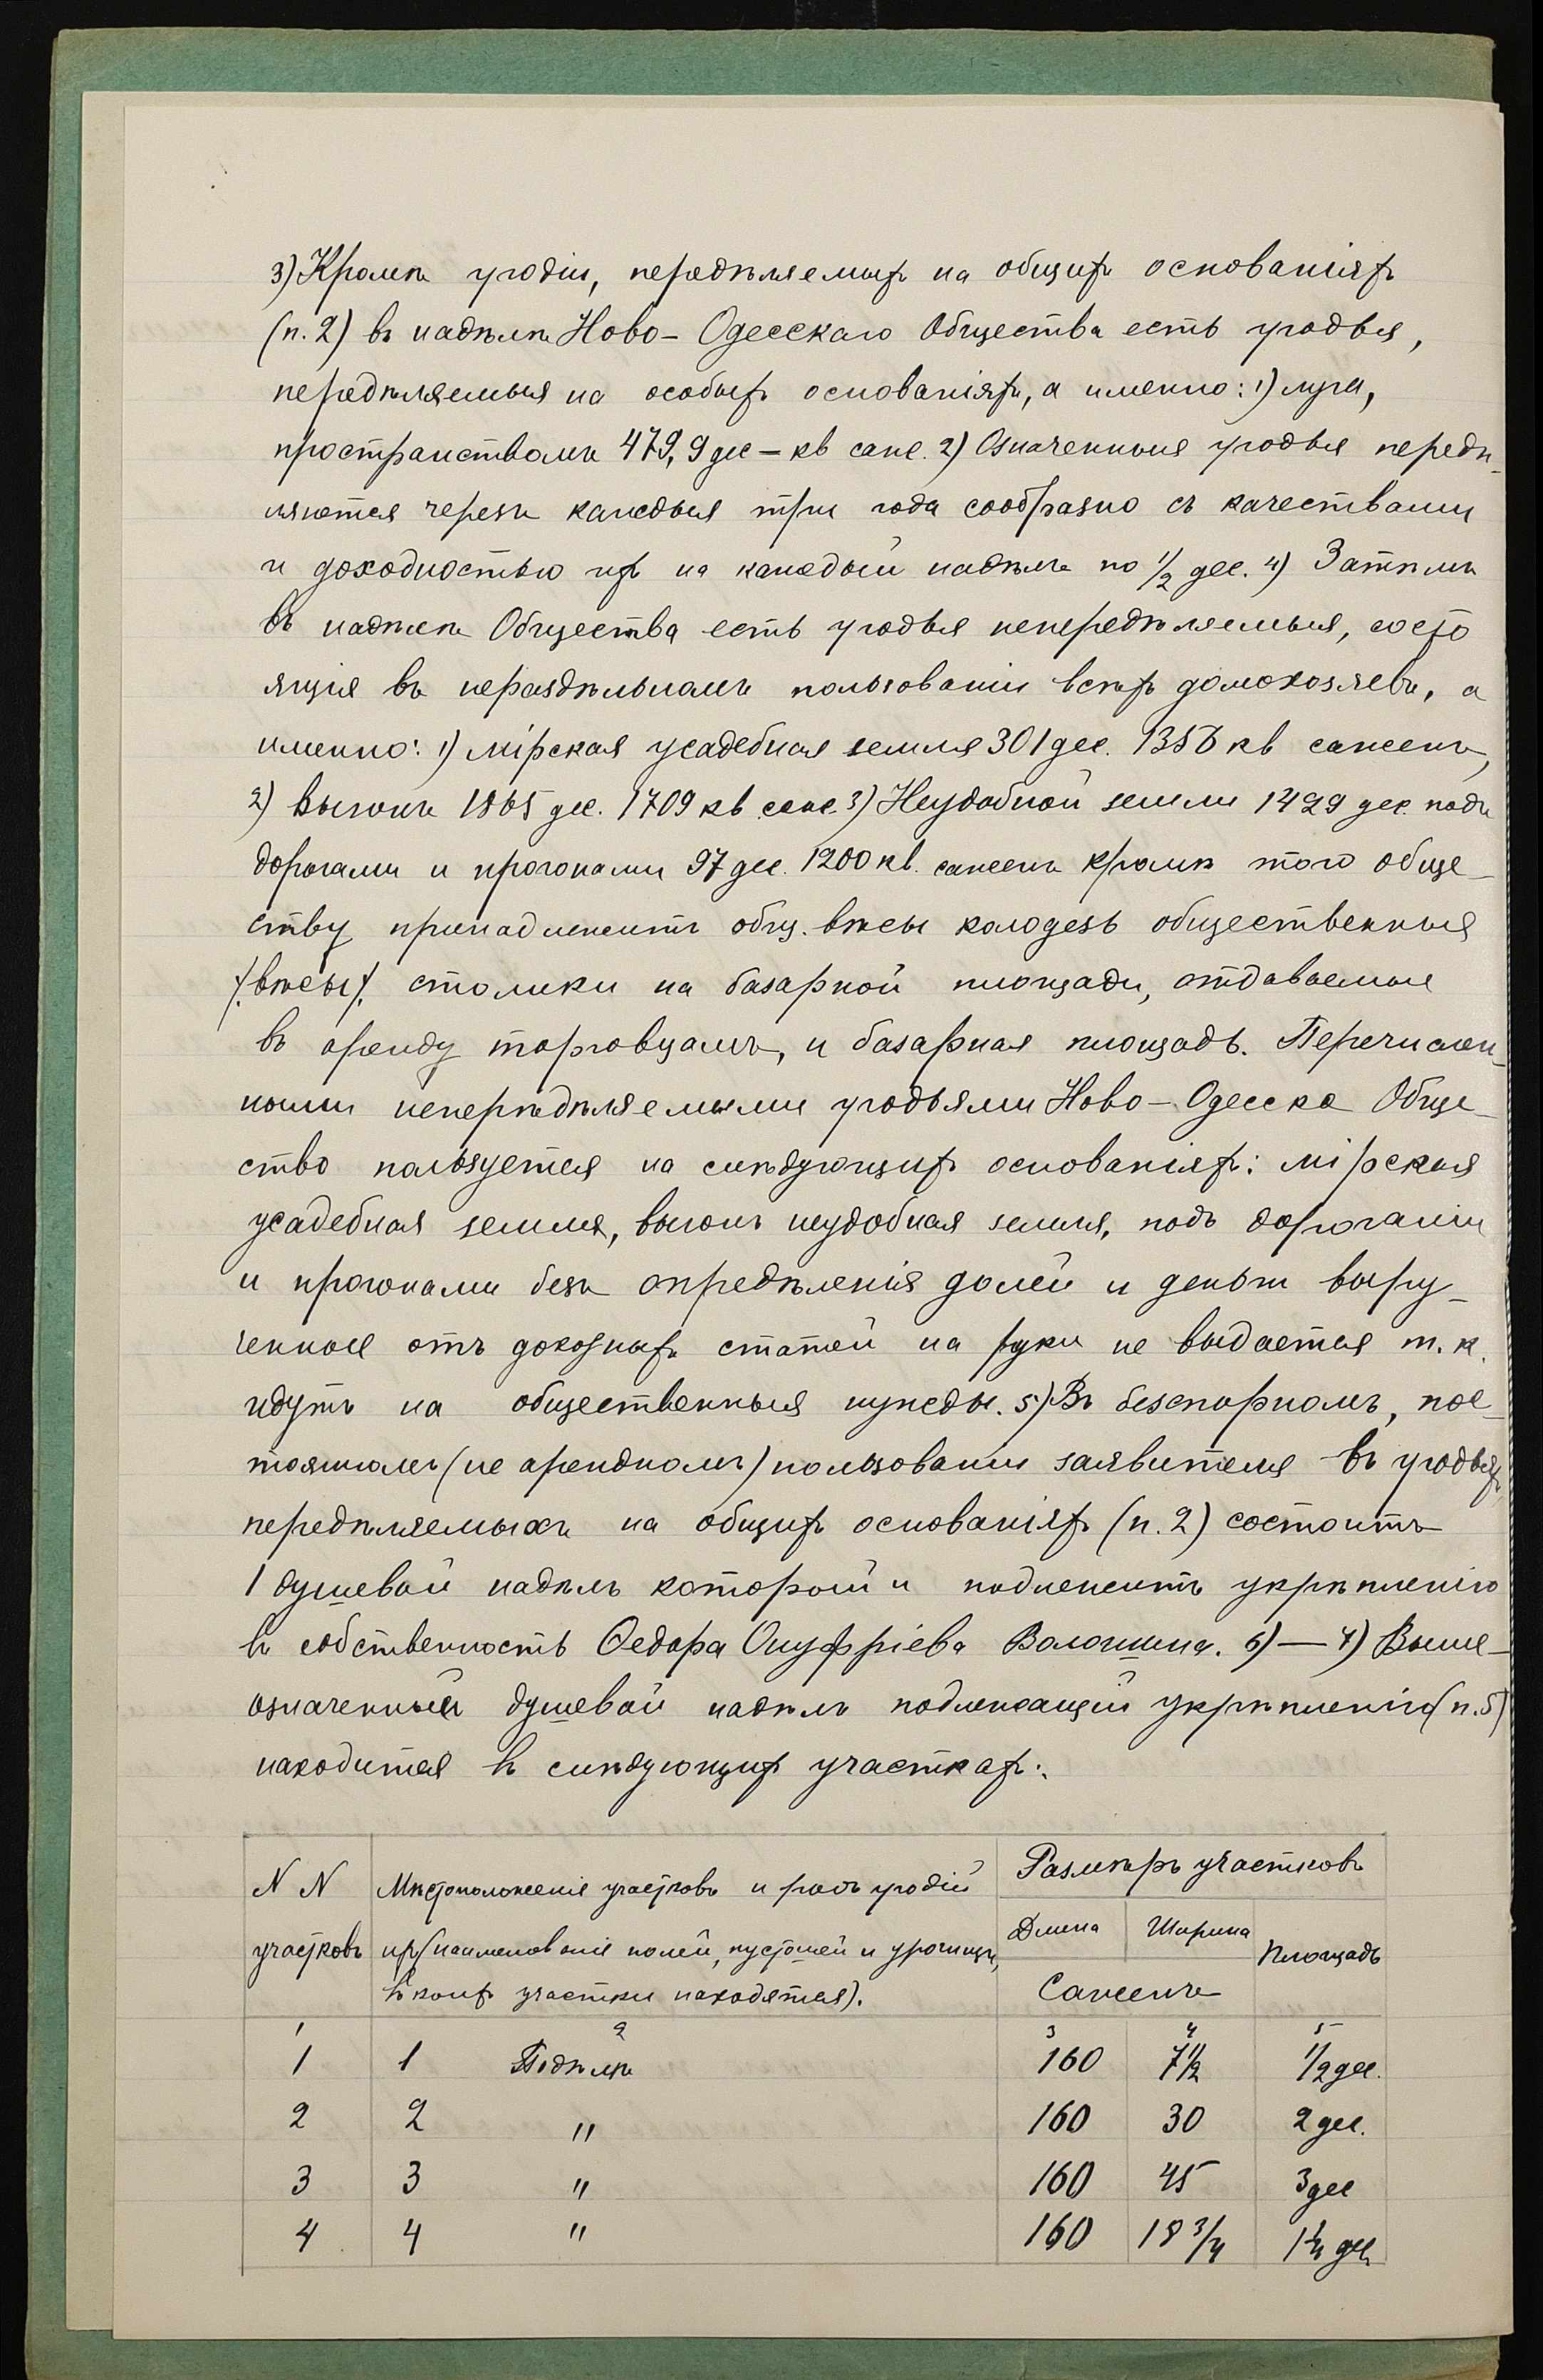 3) Кромѣ угодій, передѣляемыхъ на общихъ основаніяхъ
(п. 2) въ надѣлѣ Ново-Одесскаго Общества есть угодья,
передѣляемыя на особыхъ основаніяхъ, а именно: 1) луга,
пространствомъ 479,9 дес — кв саж. 2) Означенныя угодья передѣ-
ляются черезъ каждыя три года сообразно съ качествами
и доходностью ихъ на каждый надѣлъ по 1/2 дес. 4) Затѣмъ
въ надѣлѣ Общества есть угодья непередѣляемыя, состо
ящія въ нераздѣльномъ пользованіи всѣхъ домохозяевъ, а
именно: 1) мірская усадебная земля 301 дес. 1356 кв сажень,
2) Выгонъ 1865 дес. 1709 кв саж. 3) Неудобной земли 1429 дес. подъ
дорогами и прогонами 97 дес. 1200 кв. сажень кромѣ того обще-
ству принадлежитъ общ. вѣсы колодезь общественныя
/.вѣсы/. столики на базарной площади, отдаваемые
въ аренду торговцамъ, и базарная площадь. Перечислен-
ными непередѣляемыми угодьями Ново-Одесска Обще-
ство пользуется на слѣдующихъ основаніяхъ: мірская
усадебная земля, выгонъ неудобная земля, подъ дорогами
и прогонами безъ опредѣленія долей и деньги выру-
ченные отъ доходныхъ статей на руки не выдается т. к.
идутъ на общественныя нужды. 5) Въ безспорномъ, пос-
тоянномъ (не арендномъ) пользованіи заявителя въ угодьяхъ
передѣляемыхъ на общихъ основаніяхъ (п. 2) состоитъ
1 душевой надѣлъ который и подлежитъ укрѣпленію
въ собственность Ѳедора Онуфріева Волошина. 6) — 7) Выше-
означенный душевой надѣлъ подлежащій укрѣпленію (п. 5)
находится въ слѣдующихъ участкахъ:
N N Мѣстоположенія участковъ и родъ угодій Размѣръ участковъ
участковъ ихъ (наименованіе полей, пустошей и урочищъ, Длина Ширина Площадь
въ коихъ участки находятся). Сажень
1 2 3 4 5
1 1 Подѣлъ 160 7 1/2 1/2 дес.
2 2 " 160 30 2 дес.
3 3 " 160 45 3 дес
4 4 " 160 18 3/4 1 1/4 дес.